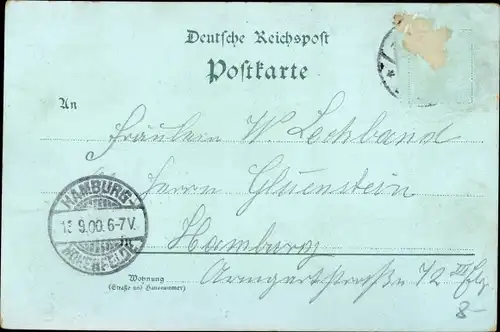 Deutsche Reichspost
Postkarte
An
Fräulein W. Lechband
Herrn Gluenstein
HAMBURG-
13 9.00. 6-7 V.
HOHENFELDE
in Hamburg
Armgartstraße 12 III Etg
Wohnung
(Straße und Hausnummer)
8-